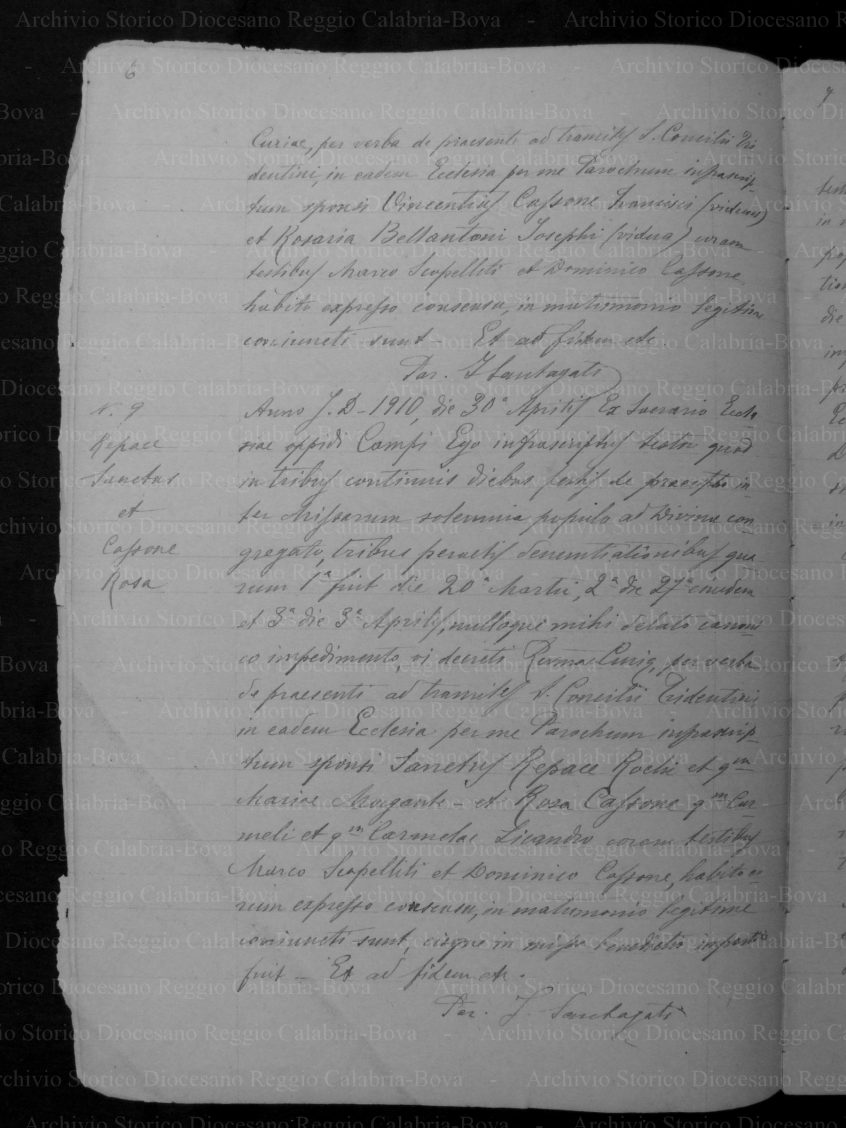 6
Curiae, per verba de praesenti ad tramites S. Concilii Tri
dentini, in eadem Ecclesia per me Parochum infrascrip-
tum sponsi Vincentius Cassone Francisci (viduus)
et Rosaria Bellantoni Josephi (vidua) coram
testibus Marco Scopelliti et Dominico Cassone
habito expresso consensu, in matrimonio legitime
coniuncti sunt - Et ad fidem etc.
Par. J Santagati
N. 9
Repace
Sanctus
et
Cassone
Rosa
Anno J. D - 1910, die 30a Aprilis Ex Sacrario Eccle
siae oppidi Campi Ego infrascriptus testor quod
in tribus continuis diebus festis de praecepto in-
ter Missarum solemnia populo ad Divina con-
gregato, tribus peractis denuntiationibus qua-
rum 1a fuit die 20a Martii, 2a die 27a eiusdem
et 3a die 3a Aprilis, nulloque mihi delato canoni-
co impedimento, vi decreti Rermae Curiae, per verba
de praesenti ad tramites S. Concilii Tridentini
in eadem Ecclesia per me Parochum infrascrip-
tum sponsi Sanctus Repace Rochi et qm
Mariae Morgante - et Rosa Cassone qm Car-
meli et qm Carmelae Licandro coram testibus
Marco Scopelliti et Dominico Cassone, habito eo
rum expresso consensu, in matrimonio legitime
coniuncti sunt, eisque in missa benedictio
fuit - Et ad fidem etc.
Par. J. Santagati
7